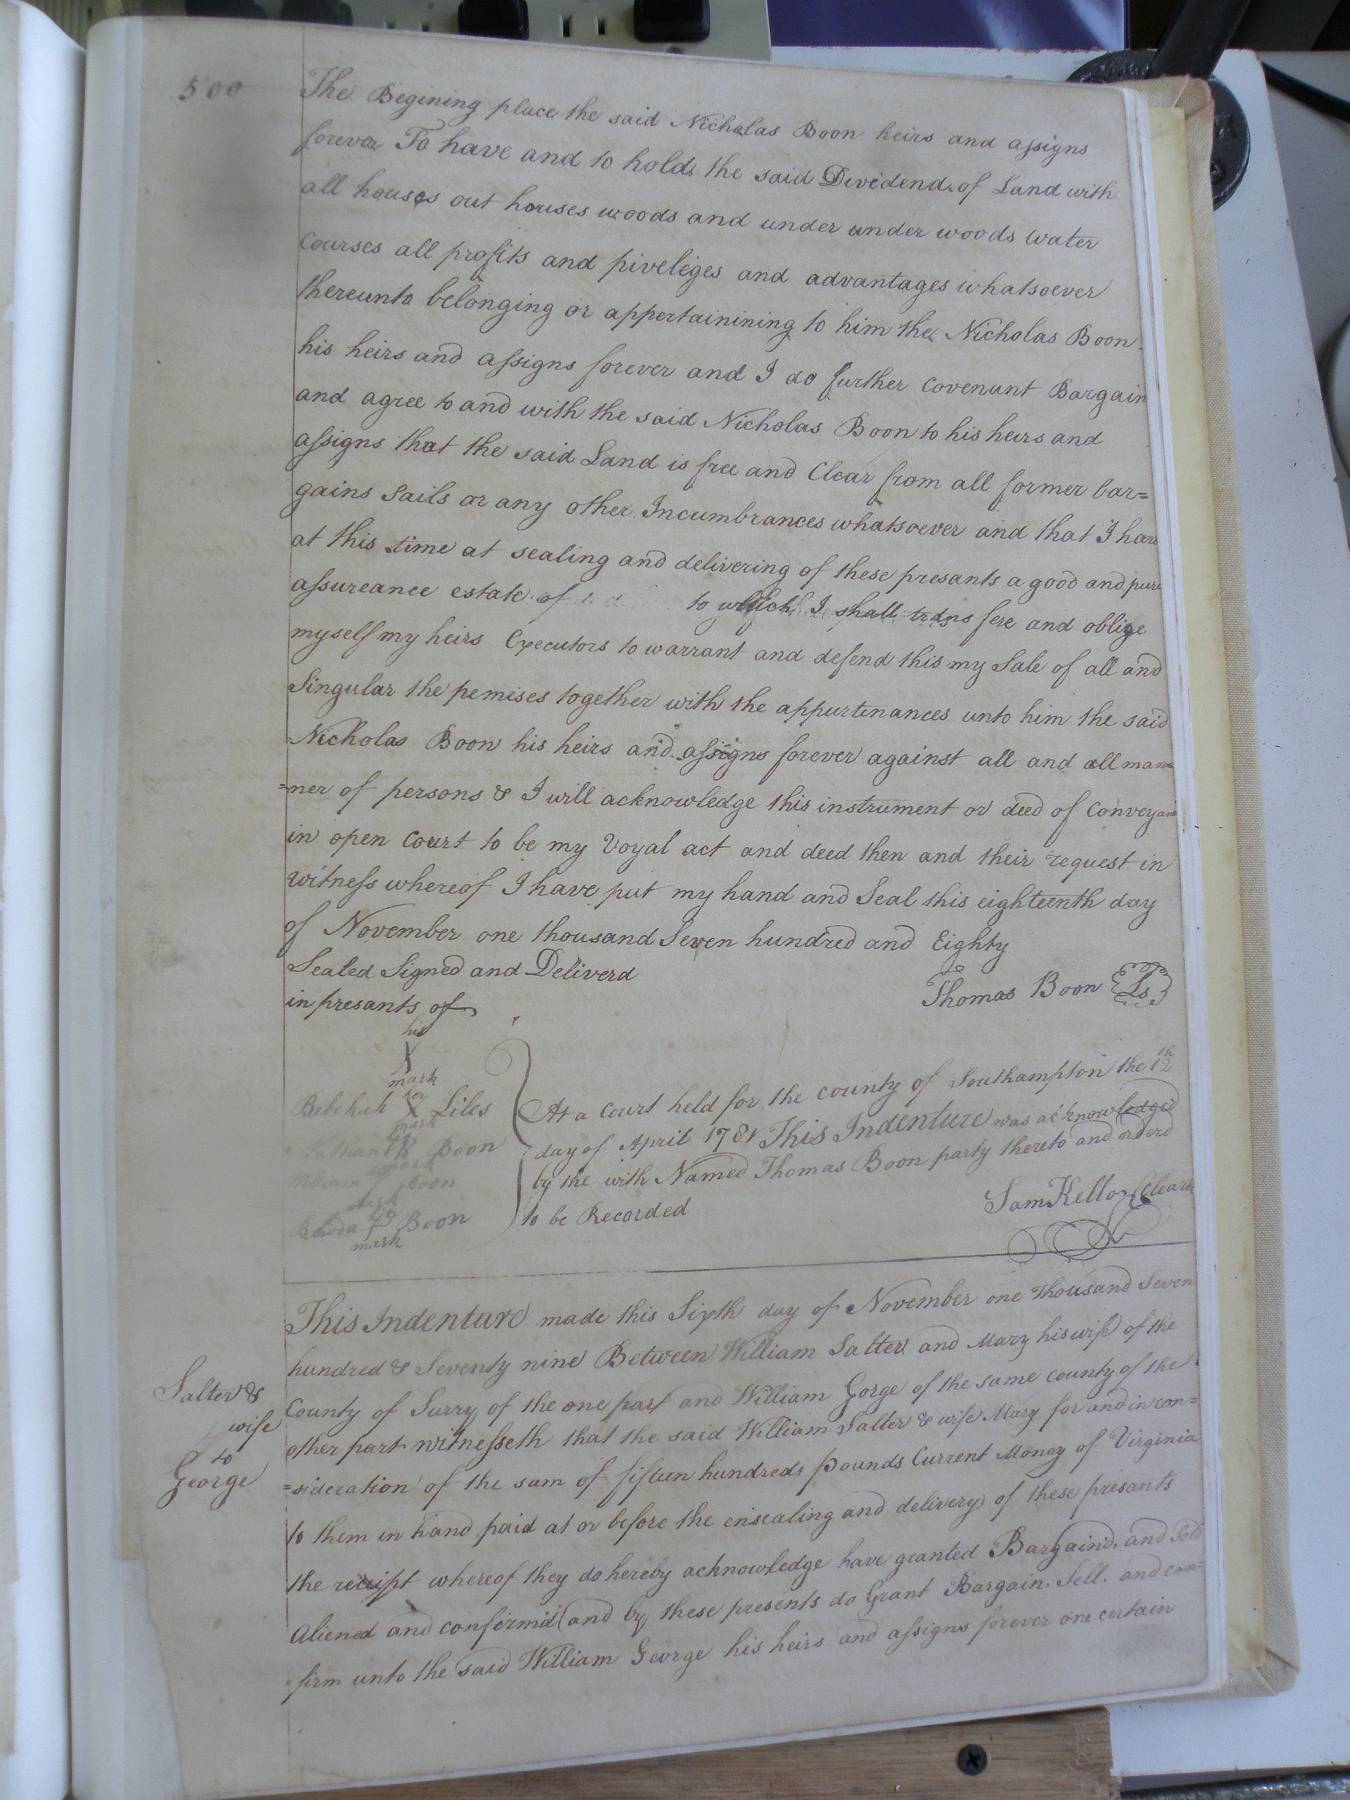 500
The Begining place the said Nicholas Boon heirs and assigns
forever To have and to hold the said Devedend of Land with
all houses out houses woods and under under woods water
Courses all profits and piveleges and advantages whatsoever
thereunto belonging or appertainining to him the Nicholas Boon
his heirs and assigns forever and I do further Covenunt Bargain
and agree to and with the said Nicholas Boon to his heirs and
assigns that the said Land is free and Clear from all former bar=
gains Sails or any other Incumbrances whatsoever and that I have
at this time at sealing and delivering of these presants a good and pure
assureance estate of to which I shall trans fere and oblige
myself my heirs Executors to warrant and defend this my Sale of all and
Singular the pemises together with the appurtenances unto him the said
Nicholas Boon his heirs and assigns forever against all and all man
=ner of persons & I will acknowledge this instrument or deed of Conveyan
in open Court to be my Voyal act and deed then and their request in
Witness whereof I have put my hand and Seal this eighteenth day
of November one thousand Seven hundred and Eighty
Sealed Signed and Deliverd
in presants of
Thomas Boon Ls
his
X
mark
Bebekah X Liles
mark
Nathan Boon
mark
William Boon
mark
Rhoda Boon
mark
At a Court held for the county of Southampton the 12th
day of April 1781 This Indenture was acknowledged
by the with Named Thomas Boon party thereto and orderd
to be Recorded
Sam Kello Cleark
Salter &
wife
to
George
This Indenture made this Sixth day of November one thousand Seven
hundred & Seventy nine Between William Salter and Mary his wife of the
County of Surry of the one part and William Gorge of the same county of the
other part witnesseth that the said William Salter & wife Mary for and in con=
=sideration of the sum of fifteen hundreds pounds Current Money of Virginia
to them in hand paid at or before the ensealing and delivery of these presants
the receipt whereof they do hereby acknowledge have granted Bargaind and Sold
Aliened and confirmd (and by these presents do Grant Bargain, Sell, and con=
firm unto the said William George his heirs and assigns forever one certain